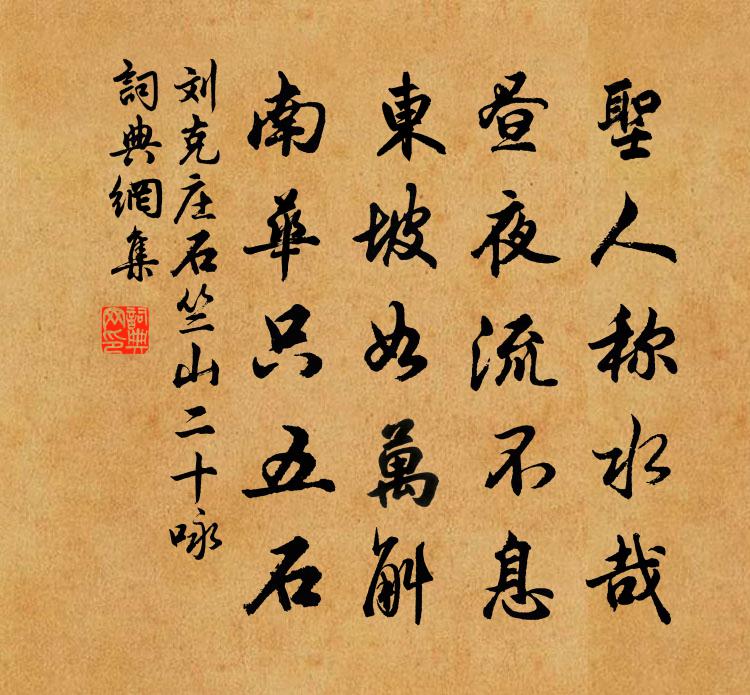 聖人称水哉
昼夜流不息
東坡如萬斛
南華只五石
刘克庄石竺山二十咏
詞典網集
詞典
网印